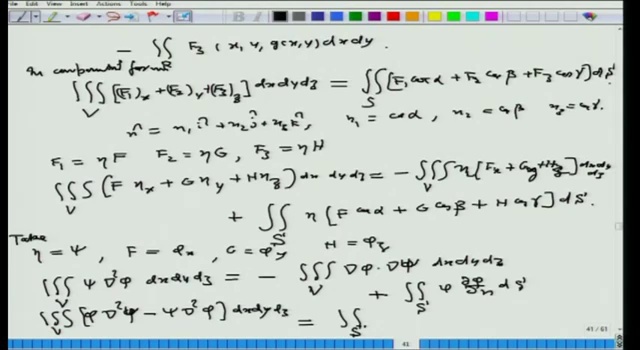 File Edit View Insert Actions Tools Help
− ∬_R F₃(x, y, g(x,y)) dx dy.
In component form
∭_V [(F₁)_x + (F₂)_y + (F₃)_z] dx dy dz = ∬_S [F₁ cos α + F₂ cos β + F₃ cos γ] dS
n̂ = n₁ î + n₂ ĵ + n₃ k̂, n₁ = cos α, n₂ = cos β n₃ = cos γ.
F₁ = ηF F₂ = ηG, F₃ = ηH
∭_V (F η_x + G η_y + H η_z) dx dy dz = − ∭_V η [F_x + G_y + H_z] dx dy dz
+ ∬_S η [F cos α + G cos β + H cos γ] dS.
Take η = ψ, F = φ_x, G = φ_y H = φ_z
∭_V ψ ∇²φ dx dy dz = − ∭_V ∇φ · ∇ψ dx dy dz
+ ∬_S ψ ∂φ/∂n dS
∭_V [φ ∇²ψ − ψ ∇²φ] dx dy dz = ∬_S
41 / 61
41